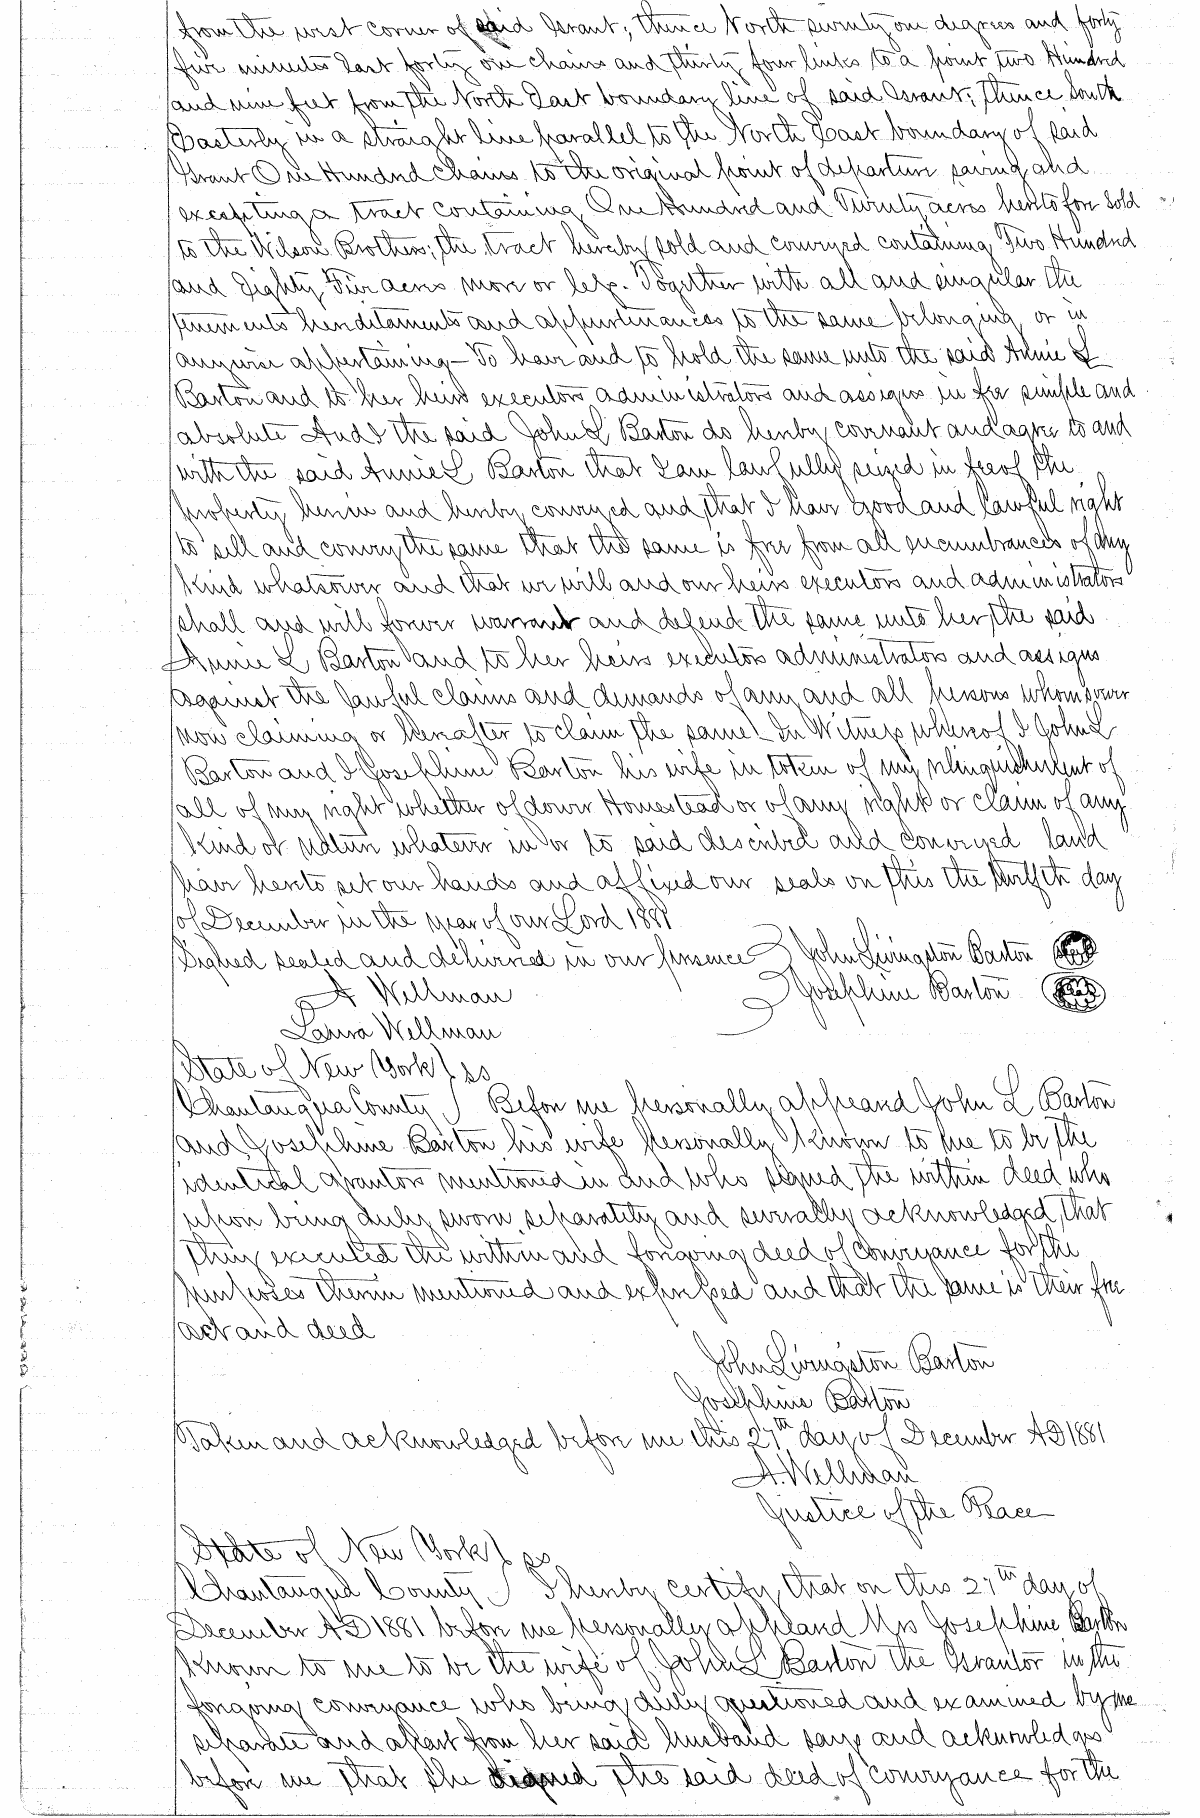 from the west corner of said Grant; thence North seventy one degrees and forty
five minutes East forty one chains and thirty four links to a point two Hundred
and nine feet from the North East boundary line of said Grant; thence South
Easterly in a straight line parallel to the North East boundary of said
Grant One Hundred chains to the original point of departure saving and
excepting a tract containing One Hundred and Twenty acres heretofore sold
to the Wilson Brothers; the tract hereby sold and conveyed containing Two Hundred
and Eighty Five acres more or less. Together with all and singular the
tenements hereditaments and appurtenances to the same belonging or in
anywise appertaining - To have and to hold the same unto the said Annie L
Barton and to her heirs executors administrators and assigns in fee simple and
absolute And I the said John L Barton do hereby covenant and agree to and
with the said Annie L Barton that I am lawfully seized in fee of the
property herein and hereby conveyed and that I have good and lawful right
to sell and convey the same that the same is free from all encumbrances of any
kind whatsoever and that we will and our heirs executors and administrators
shall and will forever warrant and defend the same unto her, the said
Annie L Barton and to her heirs executors administrators and assigns
against the lawful claims and demands of any and all persons whomsoever
now claiming or hereafter to claim the same. In Witness whereof I John L
Barton and I Josephine Barton his wife in token of my relinquishment of
all of my right whether of dower Homestead or of any right or claim of any
kind or nature whatever in or to said described and conveyed land
have hereto set our hands and affixed our seals on this the twelfth day
of December in the year of our Lord 1881
Signed sealed and delivered in our presence } John Livingston Barton
A Wellman } Josephine Barton
Laura Wellman
State of New York } ss
Chautauqua County } Before me personally appeared John L Barton
and Josephine Barton his wife personally known to me to be the
identical grantors mentioned in and who signed the within deed who
upon being duly sworn separately and severally acknowledged that
they executed the within and foregoing deed of conveyance for the
purposes therein mentioned and expressed and that the same is their free
act and deed
John Livingston Barton
Josephine Barton
Taken and acknowledged before me this 27th day of December AD 1881
A. Wellman
Justice of the Peace
State of New York } ss
Chautauqua County } I hereby certify that on this 27th day of
December AD 1881 before me personally appeared Mrs Josephine Barton
known to me to be the wife of John L Barton the Grantor in the
foregoing conveyance who being duly questioned and examined by me
separate and apart from her said husband says and acknowledges
before me that she signed the said deed of conveyance for the